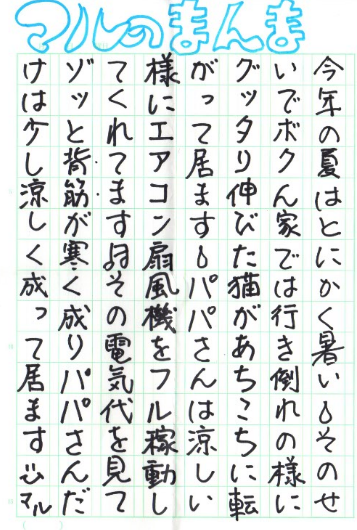 マルのまんま
今年の夏はとにかく暑いそのせ
いでボクん家では行き倒れの様に
グッタり伸びた猫があちこちに転
がって居ますパパさんは涼しい
様にエアコン扇風機をフル稼動し
てくれてますその電気代を見て
ゾッと背筋が寒く成りパパさんだ
けは少し涼しく成って居ます
マル